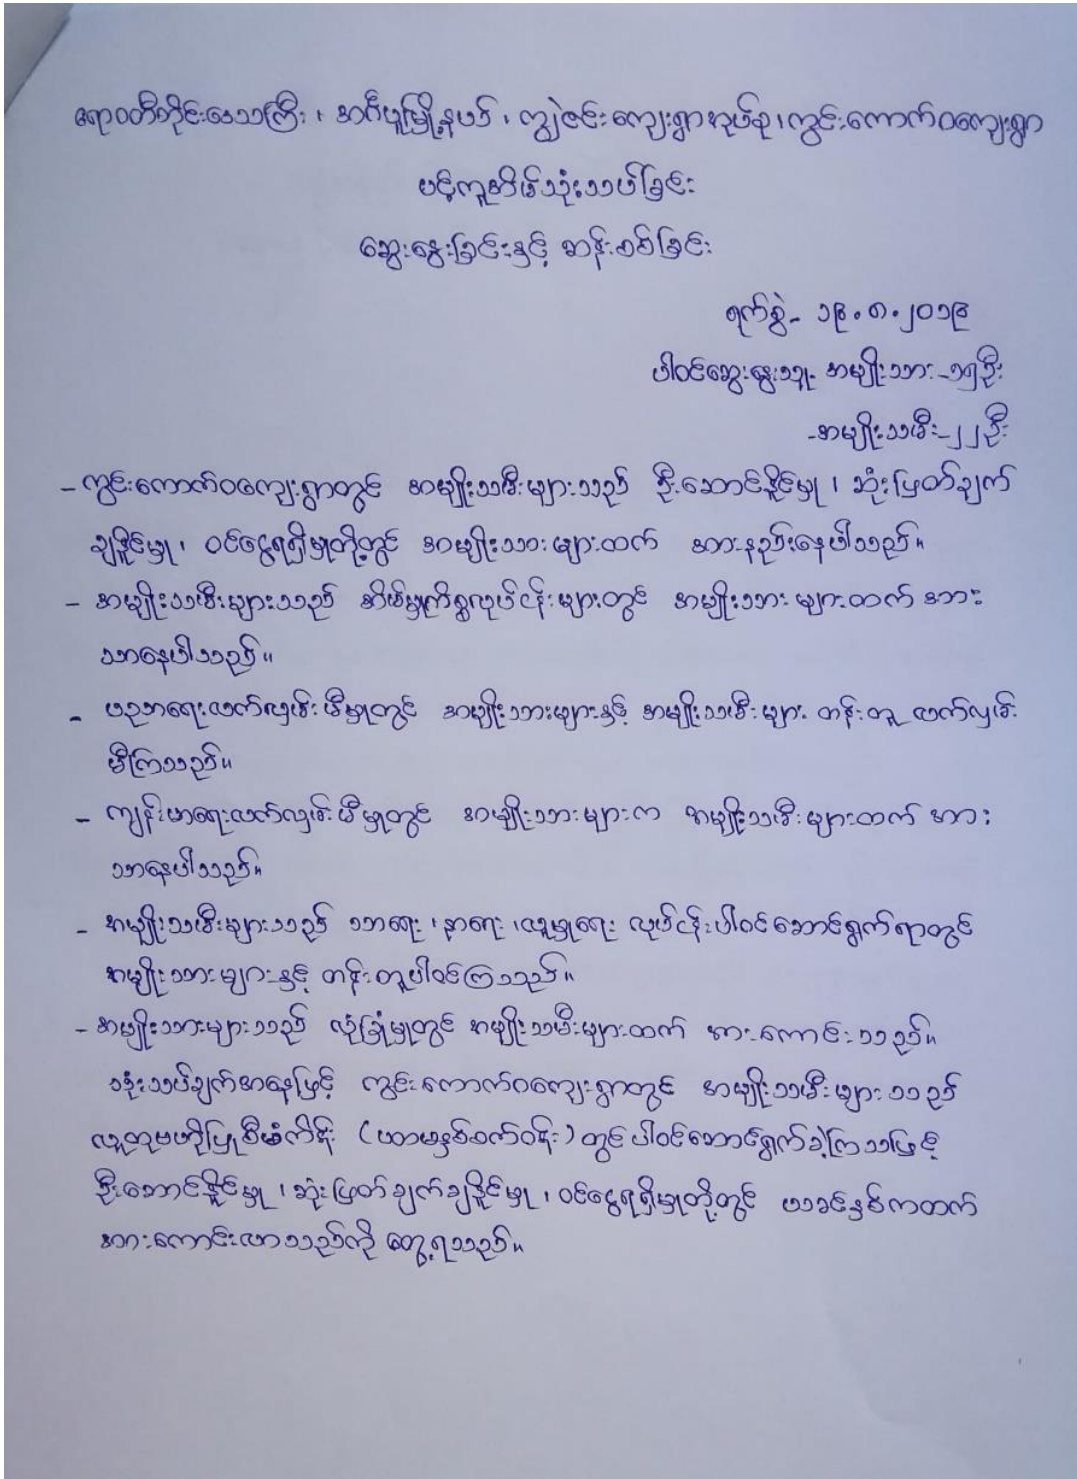 ဧရာဝတီတိုင်းဒေသကြီး၊ အင်္ဂပူမြို့နယ်၊ ကျွဲဇင်းကျေးရွာအုပ်စု၊ ကွင်းကောက်ဝကျေးရွာ
ပင့်ကူအိမ်သုံးသပ်ခြင်း
ဆွေးနွေးခြင်းနှင့် ဆန်းစစ်ခြင်း
ရက်စွဲ- ၁၉.၈.၂၀၁၉
ပါဝင်ဆွေးနွေးသူ- အမျိုးသား-၁၅ဦး
-အမျိုးသမီး-၂၂ဦး
- ကွင်းကောက်ဝကျေးရွာတွင် အမျိုးသမီးများသည် ဦးဆောင်နိုင်မှု၊ ဆုံးဖြတ်ချက်
ချနိုင်မှု၊ ဝင်ငွေရရှိမှုတို့တွင် အမျိုးသားများထက် အားနည်းနေပါသည်။
- အမျိုးသမီးများသည် အိမ်မှုကိစ္စလုပ်ငန်းများတွင် အမျိုးသားများထက် အား
သာနေပါသည်။
- ပညာရေးလက်လှမ်းမီမှုတွင် အမျိုးသားများနှင့် အမျိုးသမီးများ တန်းတူ လက်လှမ်း
မီကြသည်။
- ကျန်းမာရေးလက်လှမ်းမီမှုတွင် အမျိုးသားများက အမျိုးသမီးများထက် အား
သာနေပါသည်။
- အမျိုးသမီးများသည် သာရေး၊ နာရေး၊ လူမှုရေး လုပ်ငန်းပါဝင်ဆောင်ရွက်ရာတွင်
အမျိုးသားများနှင့် တန်းတူပါဝင်ကြသည်။
- အမျိုးသားများသည် လုံခြုံမှုတွင် အမျိုးသမီးများထက် အားကောင်းသည်။
သုံးသပ်ချက်အနေဖြင့် ကွင်းကောက်ဝကျေးရွာတွင် အမျိုးသမီးများသည်
လူထုဗဟိုပြုစီမံကိန်း (ယာမနှစ်ဆက်ဝန်း) တွင်ပါဝင်ဆောင်ရွက်ခဲ့ကြသဖြင့်
ဦးဆောင်နိုင်မှု၊ ဆုံးဖြတ်ချက်ချနိုင်မှု၊ ဝင်ငွေရရှိမှုတို့တွင် ယခင်နှစ်ကထက်
အားကောင်းလာသည်ကို တွေ့ရသည်။